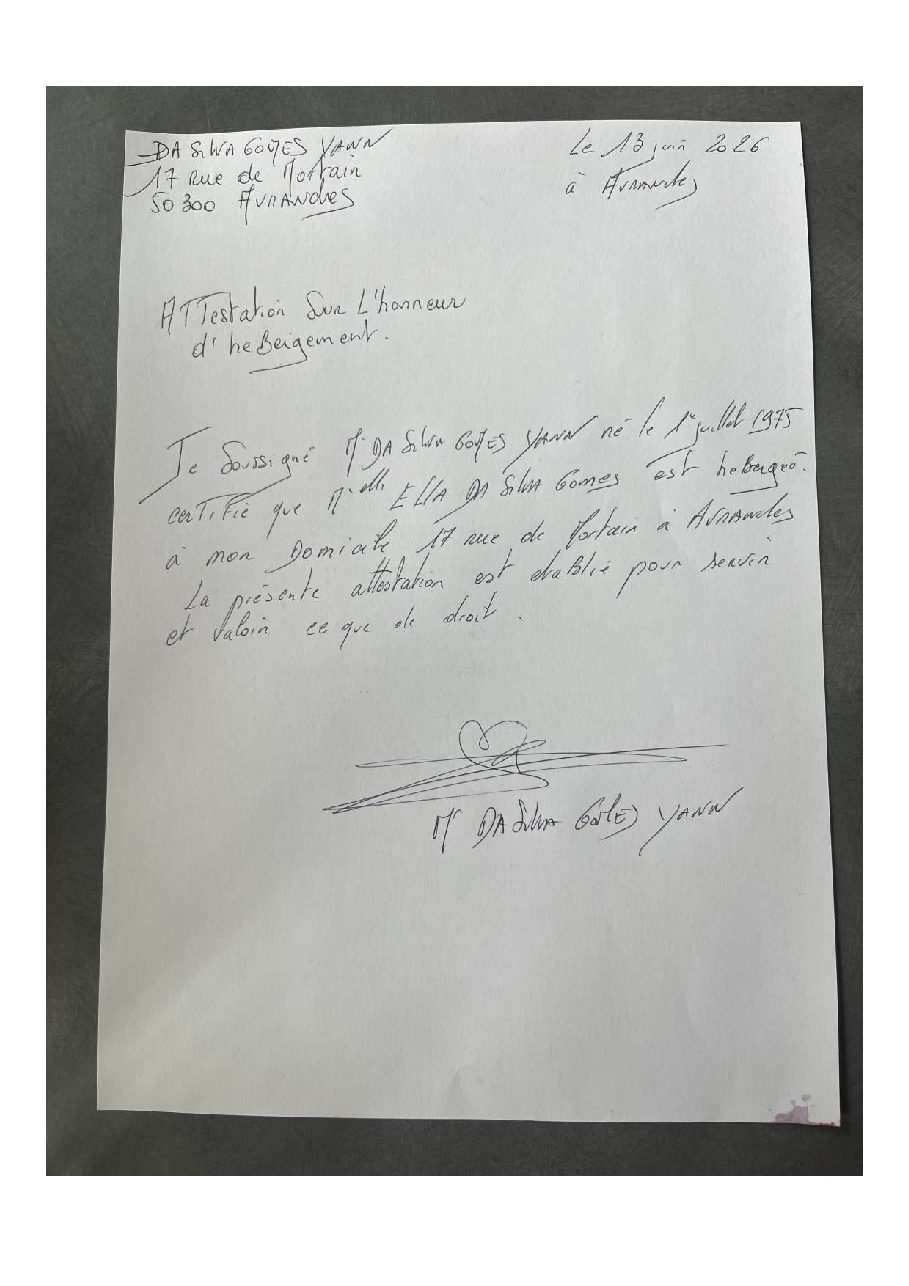 DA SILVA GOMES YANN
17 rue de Mortain
50300 AVRANCHES
Le 13 juin 2026
à AVRANCHES
ATTestation Sur L'honneur
d'heBergement.
Je Soussigné Mr DA SILVA GOMES YANN né le 1er juillet 1975
certifie que Melle ELLA DA SILVA GOMES est heBergée
à mon Domicile 17 rue de Mortain à AVRANCHES
La présente attestation est etablie pour servir
et valoir ce que de droit.
Mr DA SILVA GOMES YANN